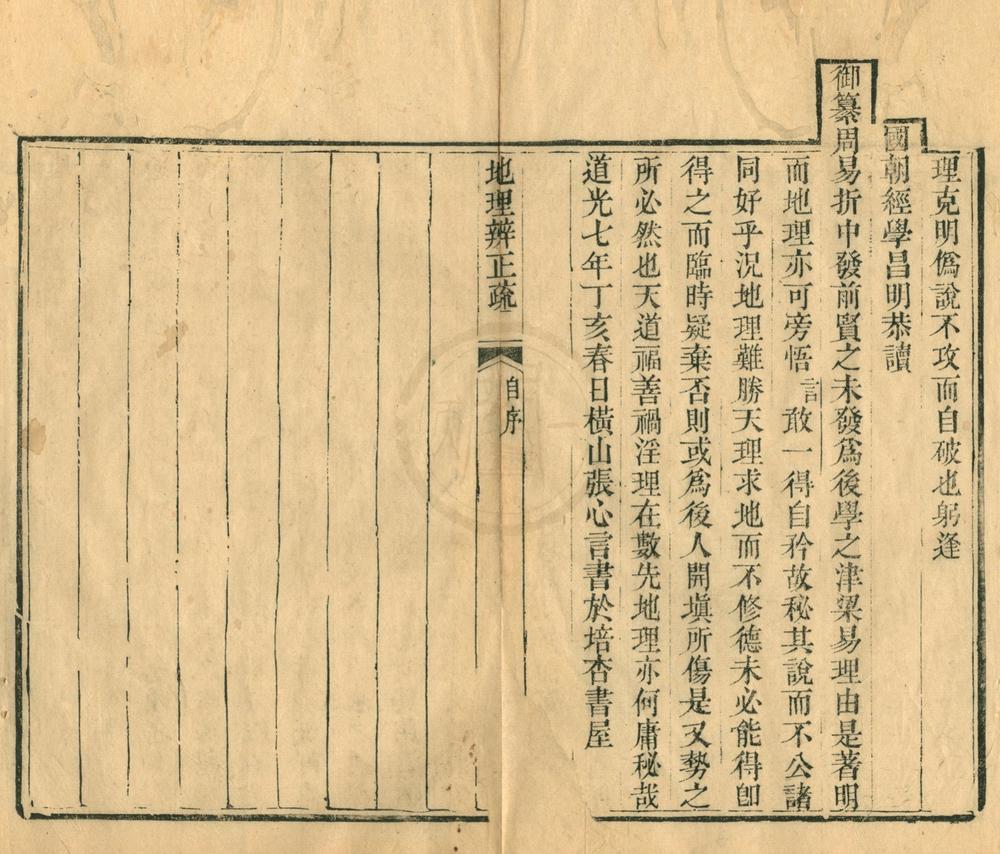 理克明僞說不攻而自破也躬逢
國朝經學昌明恭讀
御纂周易折中發前賢之未發爲後學之津梁易理由是著明
而地理亦可旁悟言敢一得自矜故秘其說而不公諸
同好乎況地理難勝天理求地而不修德未必能得卽
得之而臨時疑棄否則或爲後人開塡所傷是又勢之
所必然也天道福善禍淫理在數先地理亦何庸秘哉
道光七年丁亥春日橫山張心言書於培杏書屋
地理辨正疏
自序